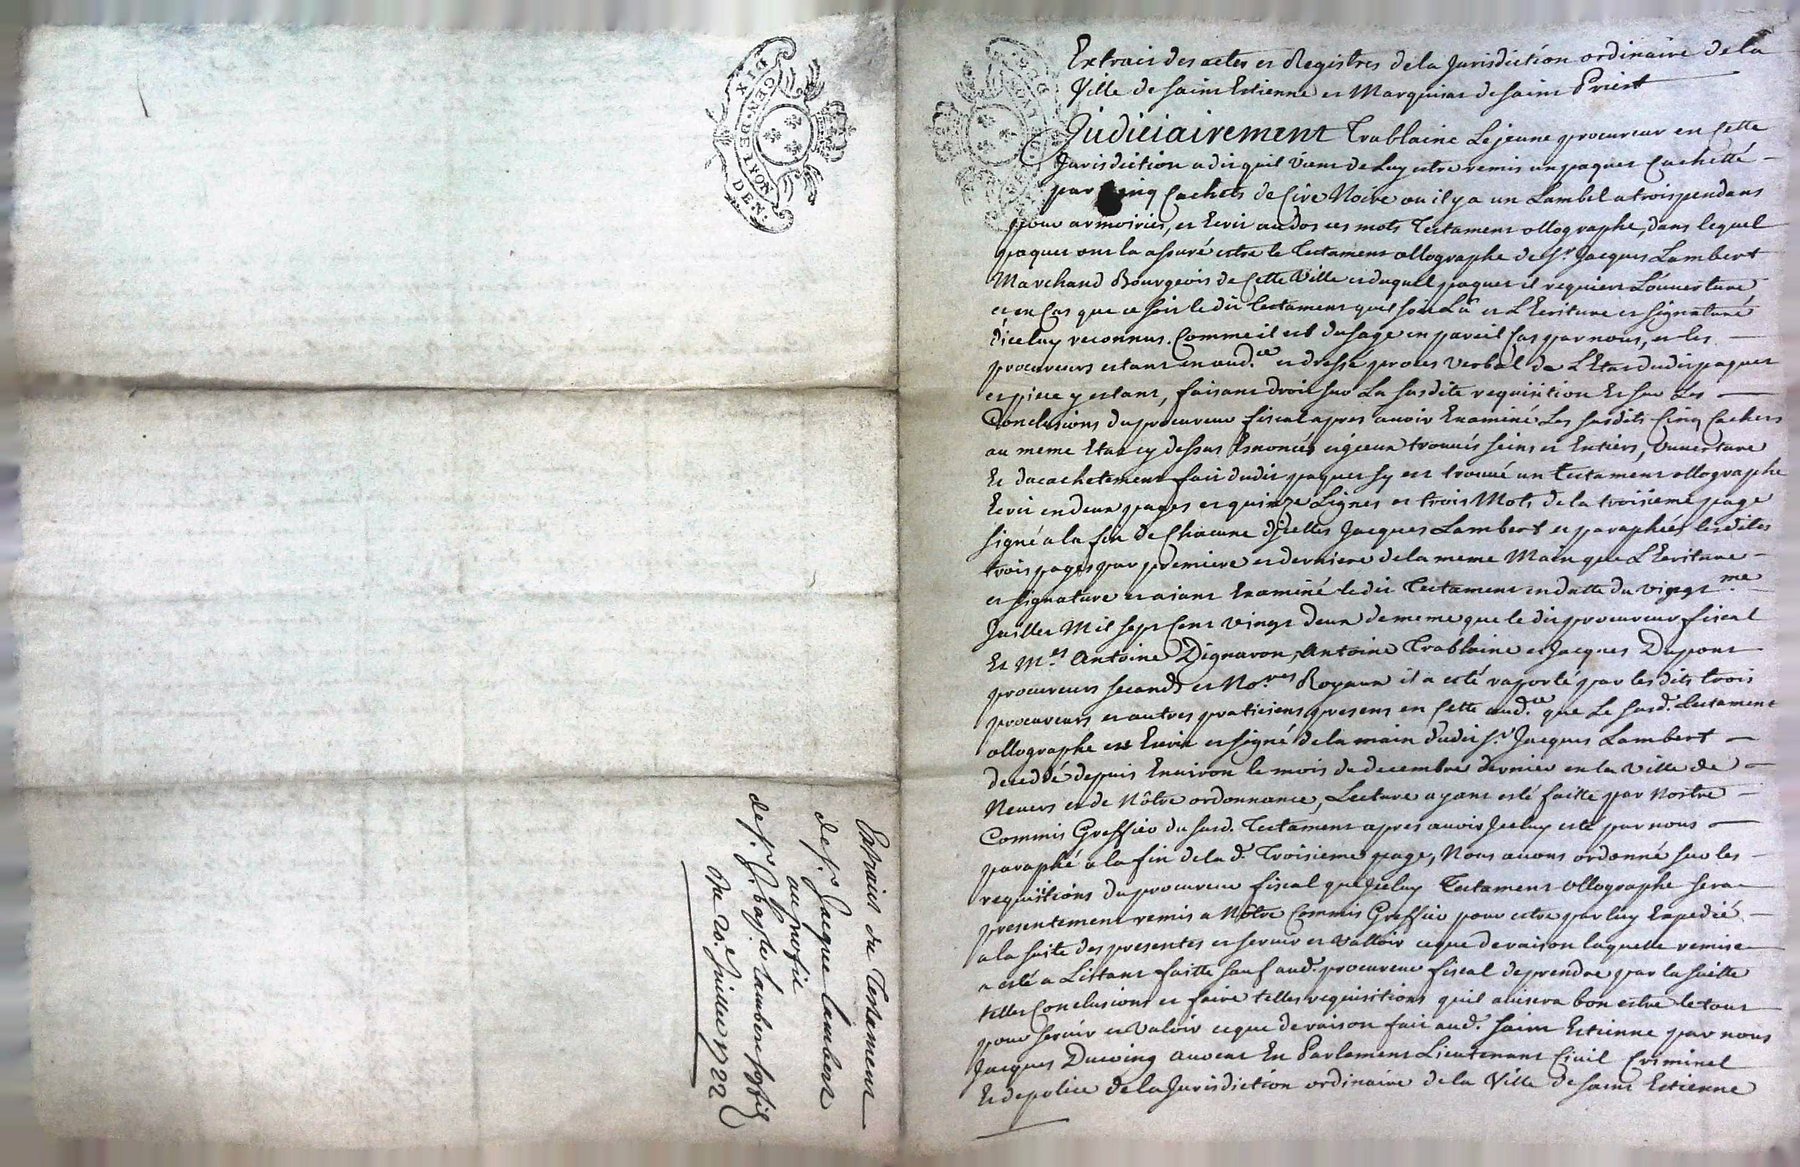 DIX
GEN. DE LION
DEN.
Extraict du Testament
de sr. Jacque Lambert
au profit
de sr. J. bapt.e Lambert son fils
Du 20.e Juillet 1722
Extrait des actes et Registres de la Jurisdiction ordinaire de la
Ville de Saint Estienne et Marquisat de Saint Priest
Judiciairement Trablaine Lejeune procureur en cette
Jurisdiction a dit quil vient de luy estre remis un paquet Cachetté
par Cinq Cachets de Cire Noire ou il y a un Lambel a trois pendans
pour armoiries, et Ecrit au dos ces mots Testament ollographe, dans lequel
paquet on la assuré estre le Testament ollographe de Sr. Jacques Lambert
Marchand Bourgeois de Cette Ville et duquel paquet il requiert Louverture
et en Cas que ce soit le dit Testament quil soit Lû et L'Ecriture et Signature
diceluy reconnus. Comme il est dusage en pareil Cas par nous, et les
procureurs estant en aud.ce et dressé procès Verbal de L'Etat dudit paquet
et piece y estant, faisant droit sur La susdite requisition Et sur Les
Conclusions du procureur fiscal apres avoir Examiné Les susdits Cinq Cachets
au meme Etat cy dessus Enoncés et iceux trouvés seins et Entiers, Ouverture
Et decachetement fait dudit paquet sy est trouvé un Testament ollographe
Ecrit en deux pages et quinze Lignes et trois Mots de la troisieme page
signé a la fin de Chacune d'Icelles Jacques Lambert et paraphées lesdites
trois pages par premiere et derniere de la meme Main que L'Ecriture
et signature et aiant Examiné le dit Testament en datte du vingt.me
Juillet Mil Sept Cent vingt deux de meme que le dit procureur fiscal
Et M.es Antoine Dignaron, Antoine Trablaine et Jacques Dupont
procureurs secands et No.res Royaux il a esté raporté par les dits trois
procureurs et autres praticiens presens en Cette aud.ce que Le susd. Testament
ollographe est Ecrit et signé de la main dudit Sr. Jacques Lambert
decedé depuis Environ le mois de decembre dernier en la Ville de
Nevers et de Nôtre ordonnance, Lecture ayant esté faitte par Nostre
Commis Greffier du susd. Testament apres avoir Iceluy esté par nous
paraphé a la fin de la d. Troisieme page, Nous avons ordonné sur les
requisitions du procureur fiscal que Iceluy Testament ollographe sera
presentement remis a Nôtre Commis Greffier pour estre par luy Expedié
a la suite des presentes et servir et valloir ce que de raison laquelle remise
a esté a Listant faitte sauf aud. procureur fiscal de prendre par la suitte
telles Conclusions et faire telles requisitions quil avisera bon estre le tout
pour servir et Valoir ce que de raison fait aud. Saint Estienne par nous
Jacques Ducoing avocat En Parlement Lieutenant Civil Criminel
Et de police de la Jurisdiction ordinaire de la Ville de Saint Estienne